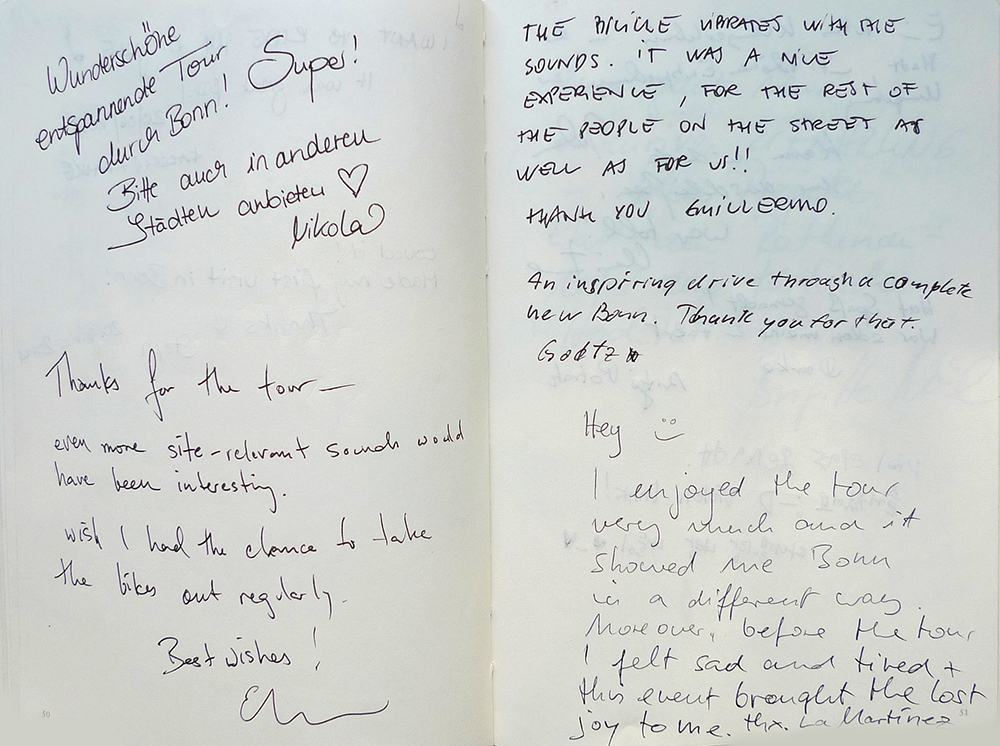 Wunderschöne
entspannende Tour
durch Bonn! Super!
Bitte auch in anderen
Städten anbieten ♡
Nikola
Thanks for the tour —
even more site-relevant sounds would
have been interesting.
wish I had the chance to take
the bikes out regularly.
Best wishes!
50
THE BICICLE VIBRATES WITH THE
SOUNDS. IT WAS A NICE
EXPERIENCE, FOR THE REST OF
THE PEOPLE ON THE STREET AS
WELL AS FOR US!!
THANK YOU GUILLERMO.
An inspiring drive through a complete
new Bonn. Thank you for that.
Goetz
Hey
I enjoyed the tour
very much and it
showed me Bonn
in a different way.
Moreover, before the tour
I felt sad and tired +
this event brought the lost
joy to me. thx. La Martínez
51